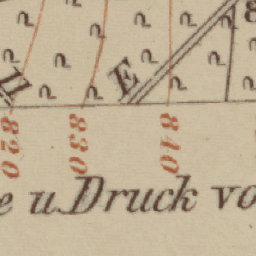 E
820
830
840
e u. Druck vo